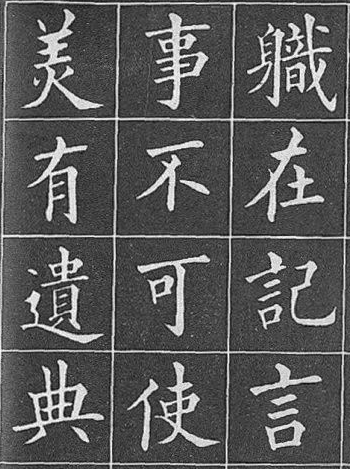 軄在記言
事不可使
羙有遺典